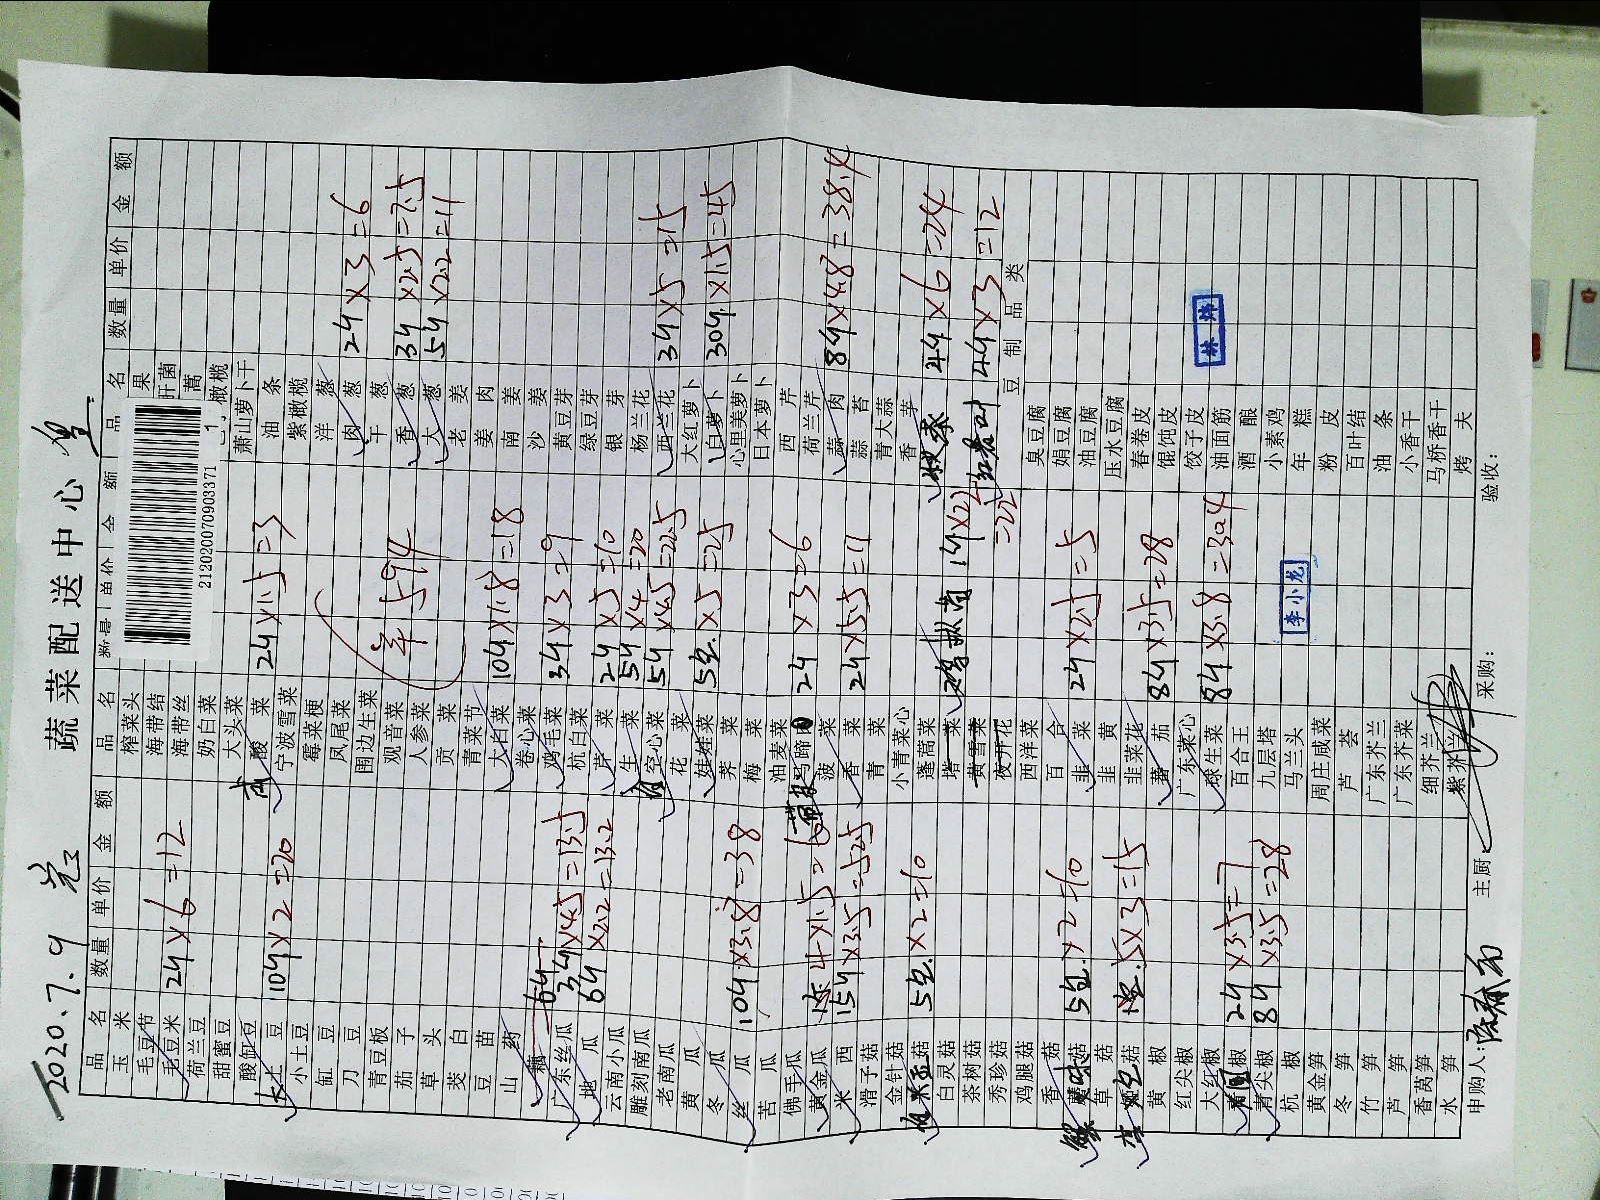 2020.7.9
蔬菜配送中心
品名 数量 单价 金额
玉米
毛豆节
毛豆米 24×6=12
荷兰豆
甜蜜豆
酸缸豆
大土豆 104×2=20
小土豆
缸豆
刀豆
青豆板
茄子
草头
茭白
豆苗
山药
藕 64
广东丝瓜 34×4.5=13.5
地瓜 64×2.2=13.2
云南小瓜
雕刻南瓜
老南瓜
黄瓜
冬瓜
丝瓜 104×3.8=38
苦瓜
佛手瓜
黄金瓜 4×1.5=6
米西 154×3.5=52.5
滑子菇
金针菇
5包×2=10
白灵菇
茶树菇
秀珍菇
鸡腿菇
香菇
5包×2=10
草菇
5×3=15
黄椒
红尖椒
大红椒
青圆椒 24×3.5=7
青尖椒 84×3.5=28
杭椒
黄金笋
冬笋
竹笋
芦笋
香莴笋
水笋
品名 数量 单价 金额
榨菜头
海带结
海带丝
奶白菜
大头菜
酸菜 24×1.5=3
宁波雪菜
霉菜梗
凤尾菜
围边生菜
观音菜
人参菜
贡菜
青菜节
大白菜 104×1.8=18
卷心菜
鸡毛菜 34×3=9
杭白菜
芹菜 24×5=10
生菜 54×4=20
空心菜 54×4.5=22.5
花菜
娃娃菜 5包×5=25
荠菜
梅菜
油麦菜
马蹄肉 24×3=6
菠菜
香菜 24×5.5=11
青菜
小青菜心
蓬蒿菜
塔菜 14×22=22
黄雪菜
夜开花
西洋菜
百合
韭菜 24×2.5=5
韭黄
韭菜花
番茄 84×3.5=28
广东菜心
球生菜 84×3.8=30.4
百合王
九层塔
马兰头
周庄咸菜
芦荟
广东芥兰
广东芥菜
细芥兰
紫芥兰
594
品名 数量 单价 金额
212020070903371 1
萧山萝卜干
油条
紫橄榄
洋葱
肉葱 24×3=6
干葱
香葱 34×2.5=7.5
大葱 54×2.2=11
老姜
姜肉
南姜
沙姜
黄豆芽
绿豆芽
银芽
杨兰花
西兰花 34×5=15
大红萝卜
白萝卜 304×1.5=45
心里美萝卜
日本萝卜
西芹
荷兰芹
蒜肉 84×4.8=38.4
蒜苔
青大蒜
香芋
44×6=24
44×3=12
豆制品类
臭豆腐
娟豆腐
油豆腐
压水豆腐
春卷皮
馄饨皮
饺子皮
油面筋
酒酿
小素鸡
年糕
粉皮
百叶结
油条
小香干
马桥香干
烤夫
李小龙
林炜
申购人:
主厨
采购:
验收: